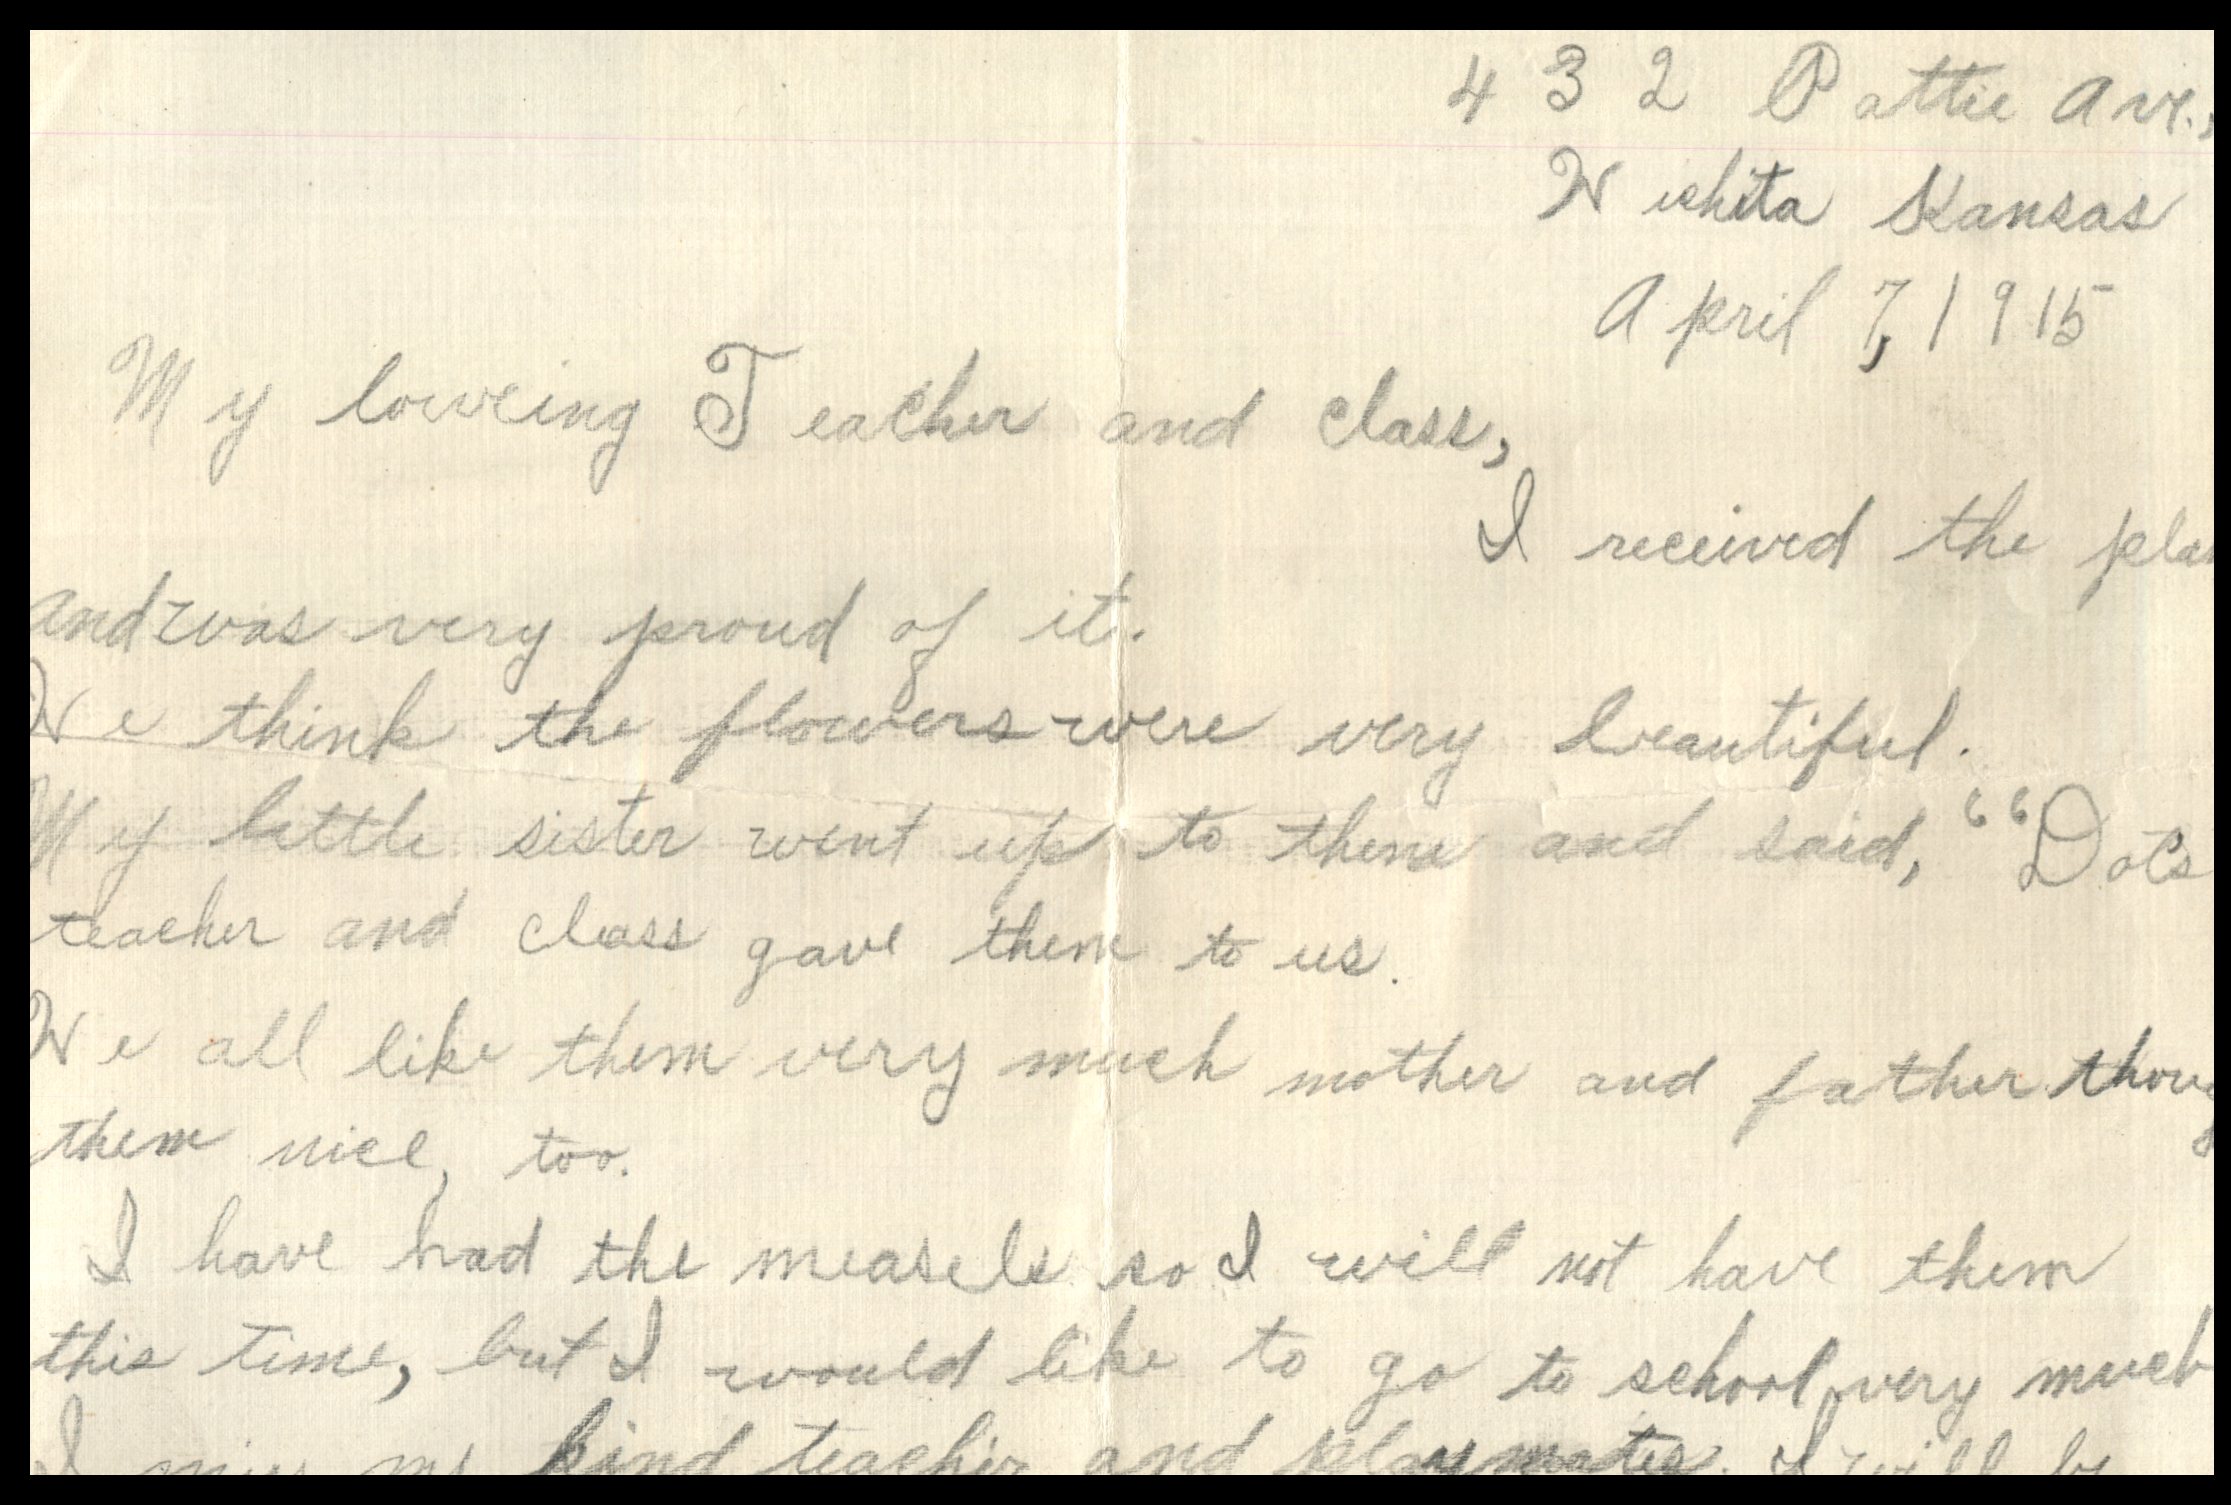 432 Pattie Ave.,
Wichita Kansas
April 7, 1915
My loveing Teacher and class,
I received the plan
and was very proud of it.
We think the flowers were very beautiful.
My little sister went up to them and said, "Dots
teacher and class gave them to us.
We all like them very much mother and father thoug
them nice, too.
I have had the measels so I will not have them
this time, but I would like to go to school very much
I miss my kind teacher and playmates. I will be